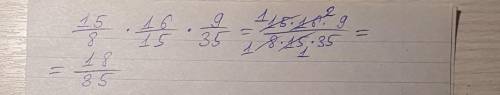 15/8 · 16/15 · 9/35 = 1 15·16 2 · 9 / 1 8·15 1 · 35 =
= 18/35